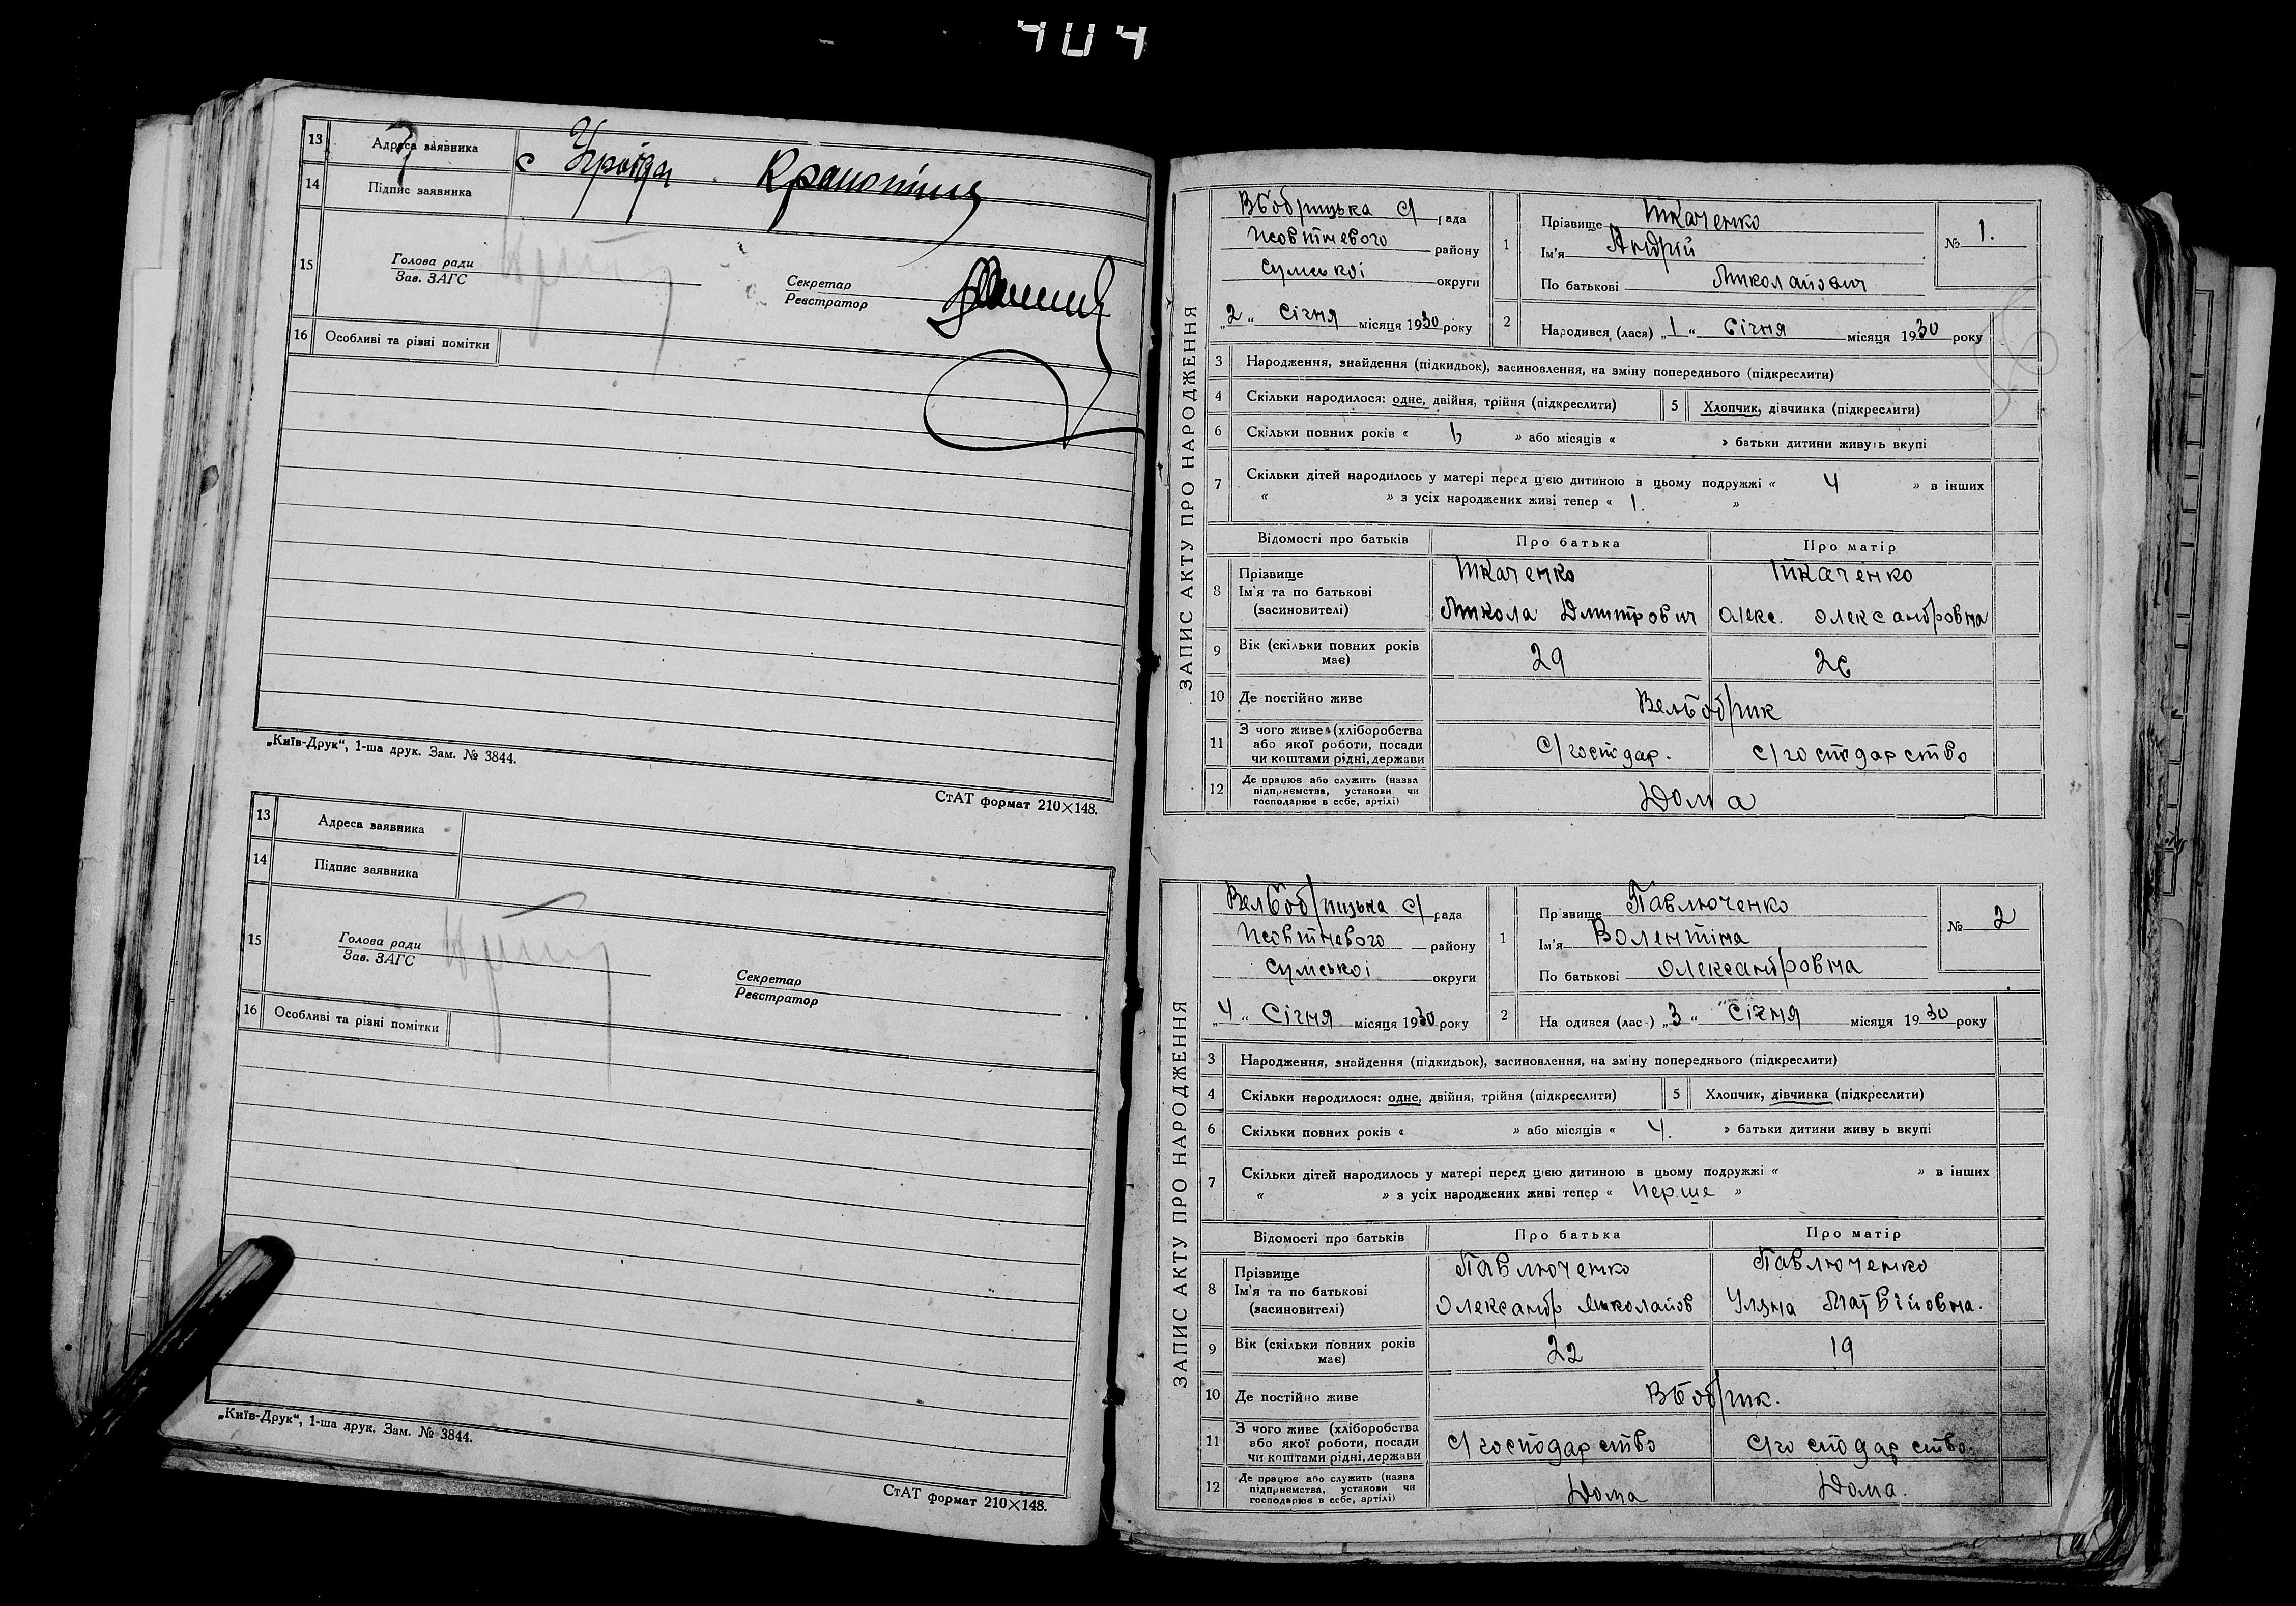 404
13 Адреса заявника с Угроїди
14 Підпис заявника
15 Голова ради
Зав. ЗАГС
Секретар
Реєстратор
16 Особливі та різні помітки
„Київ-Друк“, 1-ша друк. Зам. № 3844.
СтАТ формат 210×148.
13 Адреса заявника
14 Підпис заявника
15 Голова ради
Зав. ЗАГС
Секретар
Реєстратор
16 Особливі та різні помітки
„Київ-Друк“, 1-ша друк. Зам. № 3844.
СтАТ формат 210×148.
ЗАПИС АКТУ ПРО НАРОДЖЕННЯ
ВБобрицька с/рада
Жовтневого району
Сумської округи
„2“ Січня місяця 1930 року
1 Прізвище Ткаченко
Ім'я Андрій
По батькові Миколайович
№ 1.
2 Народився (лася) „1“ Січня місяця 1930 року
3 Народження, знайдення (підкидьок), засиновлення, на зміну попереднього (підкреслити)
4 Скільки народилося: одне, двійня, трійня (підкреслити) 5 Хлопчик, дівчинка (підкреслити)
6 Скільки повних років « 6 » або місяців « » батьки дитини живуть вкупі
7 Скільки дітей народилось у матері перед цією дитиною в цьому подружжі « 4 » в інших
« » з усіх народжених живі тепер « 1. »
Відомості про батьків Про батька Про матір
8 Прізвище Ткаченко Ткаченко
Ім'я та по батькові
(засиновителі) Микола Дмитрович Олекс. Олександровна
9 Вік (скільки повних років має) 29 26
10 Де постійно живе ВелБобрик
11 З чого живе (хліборобства
або якої роботи, посади
чи коштами рідні, держави С/господар. С/господарство
12 Де працює або служить (назва
підприємства, установи чи
господарює в себе, артілі) Дома
ЗАПИС АКТУ ПРО НАРОДЖЕННЯ
ВелБобрицька с/рада
Жовтневого району
Сумської округи
„4“ Січня місяця 1930 року
1 Прізвище Павлюченко
Ім'я Волентіна
По батькові Олександровна
№ 2
2 На одився (лас ) „3“ Січня місяця 1930 року
3 Народження, знайдення (підкидьок), засиновлення, на зміну попереднього (підкреслити)
4 Скільки народилося: одне, двійня, трійня (підкреслити) 5 Хлопчик, дівчинка (підкреслити)
6 Скільки повних років « » або місяців « 4. » батьки дитини живу ь вкупі
7 Скільки дітей народилось у матері перед цією дитиною в цьому подружжі « » в інших
« » з усіх народжених живі тепер « перше »
Відомості про батьків Про батька Про матір
8 Прізвище Павлюченко Павлюченко
Ім'я та по батькові
(засиновителі) Олександр Миколайов Уляна Матвійовна.
9 Вік (скільки повних років має) 22 19
10 Де постійно живе ВБобрик.
11 З чого живе (хліборобства
або якої роботи, посади
чи коштами рідні, держави С/господарство С/господарство
12 Де працює або служить (назва
підприємства, установи чи
господарює в себе, артілі) Дома Дома.